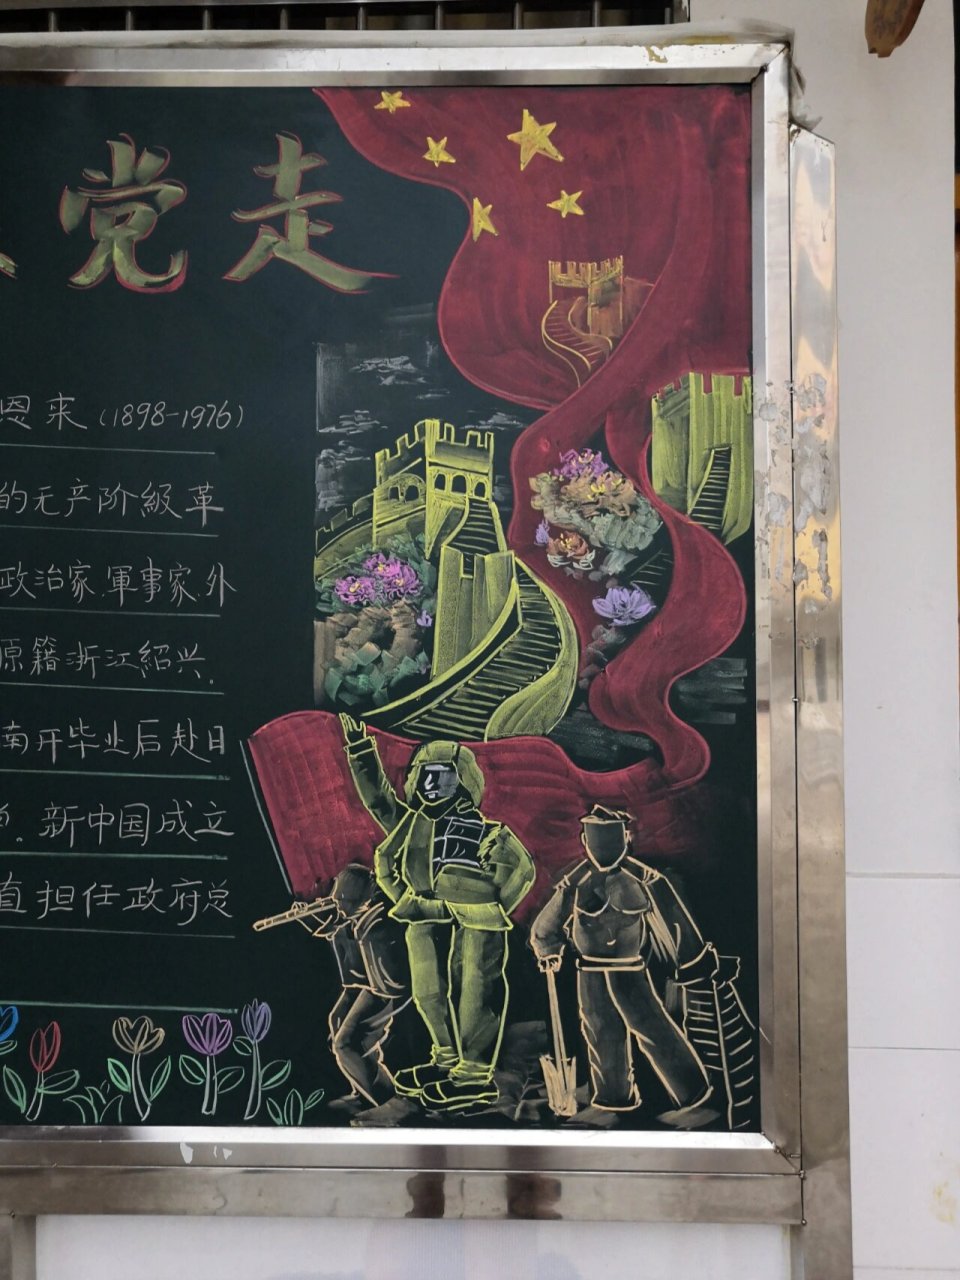 党走
恩来(1898-1976)
的无产阶級革
政治家.軍事家.外
原籍浙江紹兴.
南开毕业后赴日
. 新中国成立
直担任政府总